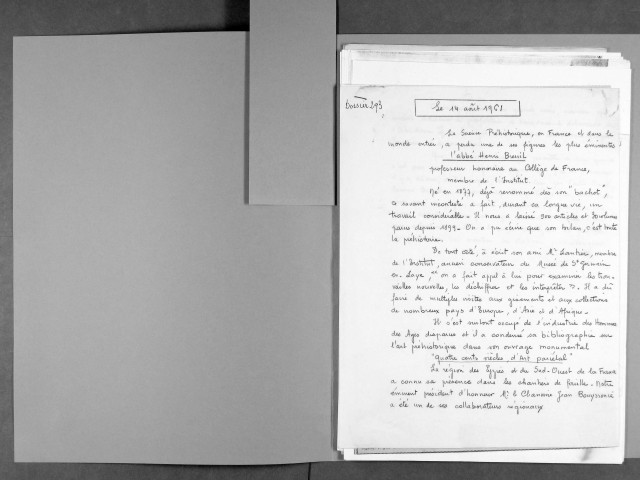 Dossier 293
Le 14 août 1961
La Science Préhistorique, en France et dans le
monde entier, a perdu une de ses figures les plus éminentes
l'abbé Henri Breuil
professeur honoraire au Collège de France,
membre de l'Institut
Né en 1877, déjà renommé dès son "bachot",
ce savant incontesté a fait, durant sa longue vie, un
travail considérable - Il nous a laissé 300 articles et volumes
parus depuis 1899 - On a pu écrire que son bilan, c'est toute
la préhistoire.
De tout côté, écrit son ami Mr Lantier, membre
de l'Institut, ancien conservateur du Musée de St Germain
en-Laye, on a fait appel à lui pour examiner les trou-
vailles nouvelles, les déchiffrer et les interpréter. Il a dû
faire de multiples visites aux gisements et aux collections
de nombreux pays d'Europe, d'Asie et d'Afrique -
Il s'est surtout occupé de l'industrie des Hommes
des Ages disparus et il a condensé sa bibliographie sur
l'art préhistorique dans son ouvrage monumental
"Quatre cents siècles d'Art pariétal"
La région des Eyzies et du Sud-Ouest de la France
a connu sa présence dans les chantiers de fouille - Notre
éminent président d'honneur Mr le Chanoine Jean Bouyssonie
a été un de ses collaborateurs régionaux